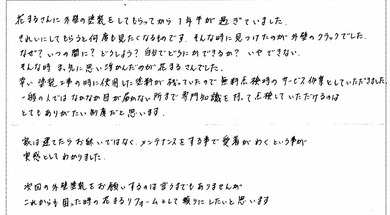 花まるさんに外壁の塗装をしてもらってから1年半が過ぎていました。
きれいにしてもらうと何度も見たくなるものです。そんな時に見つけたのが外壁のクラックでした。
なぜ？いつの間に？どうしよう？自分でどうにかできるか？いやできない。
そんな時、真っ先に思い浮かんだのが花まるさんでした。
幸い塗装工事の時に使用した塗料が残っていたので無料点検時のサービス作業としていただきました。
一般の人ではなかなか目が届かない所まで専門知識を持って点検していただけるのは
とてもありがたい制度だと思います。
家は建てたらお終いではなく、メンテナンスをする事で愛着がわくという事が
実感としてわかりました。
次回の外壁塗装をお願いするのは言うまでもありませんが
これからも困った時の花まるリフォームとして頼りにしたいと思います